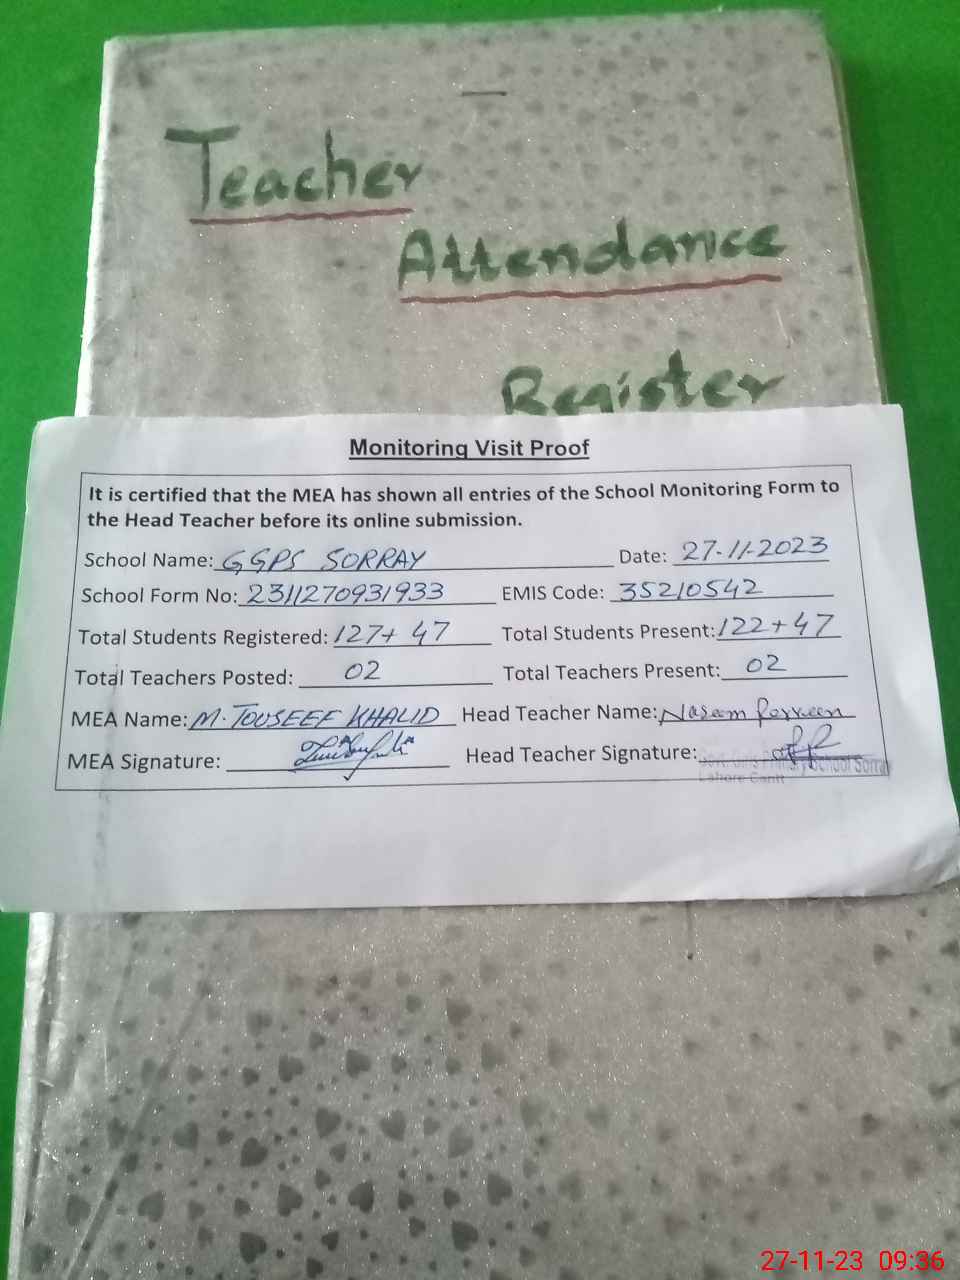 Teacher
Attendance
Register
Monitoring Visit Proof
It is certified that the MEA has shown all entries of the School Monitoring Form to
the Head Teacher before its online submission.
School Name: GGPS SORRAY Date: 27-11-2023
School Form No: 2311270931933 EMIS Code: 35210542
Total Students Registered: 127+ 47 Total Students Present: 122+47
Total Teachers Posted: 02 Total Teachers Present: 02
MEA Name: M. TOUSEEF KHALID Head Teacher Name: Naseem Perveen
MEA Signature: Head Teacher Signature:
Govt. Girls Primary School Sorray
Lahore Cantt
27-11-23 09:36